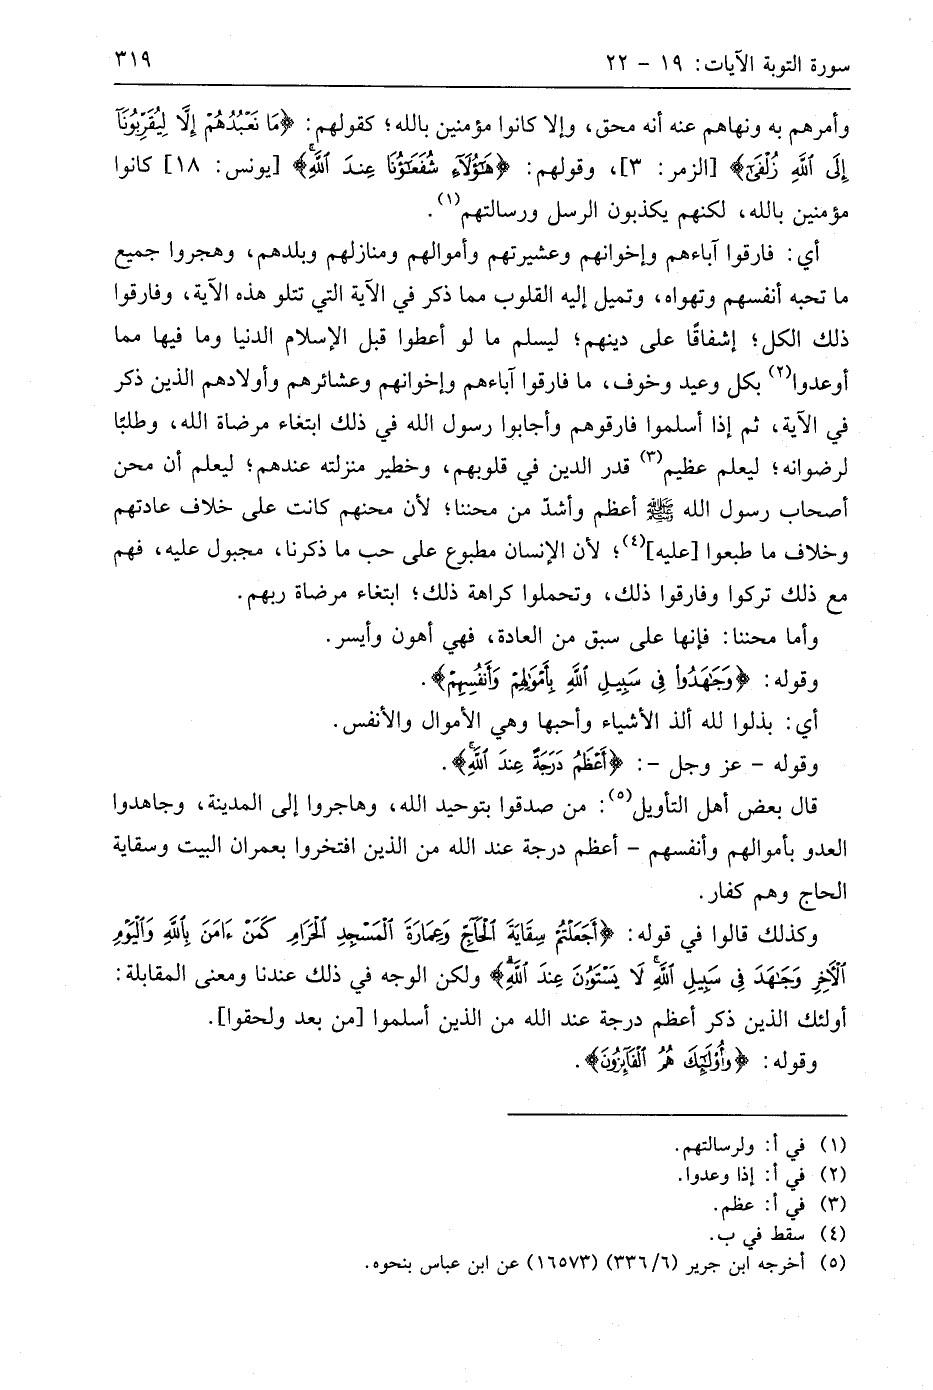 سورة التوبة الآيات: ١٩ - ٢٢ ٣١٩
وأمرهم به ونهاهم عنه أنه محق، وإلا كانوا مؤمنين بالله؛ كقولهم: ﴿مَا نَعۡبُدُهُمۡ إِلَّا لِيُقَرِّبُونَآ
إِلَى ٱللَّهِ زُلۡفَىٰٓ﴾ [الزمر: ٣]، وقولهم: ﴿هَٰٓؤُلَآءِ شُفَعَٰٓؤُنَا عِندَ ٱللَّهِۚ﴾ [يونس: ١٨] كانوا
مؤمنين بالله، لكنهم يكذبون الرسل ورسالتهم(١).
أي: فارقوا آباءهم وإخوانهم وعشيرتهم وأموالهم ومنازلهم وبلدهم، وهجروا جميع
ما تحبه أنفسهم وتهواه، وتميل إليه القلوب مما ذكر في الآية التي تتلو هذه الآية، وفارقوا
ذلك الكل؛ إشفاقًا على دينهم؛ ليسلم ما لو أعطوا قبل الإسلام الدنيا وما فيها مما
أوعدوا(٢) بكل وعيد وخوف، ما فارقوا آباءهم وإخوانهم وعشائرهم وأولادهم الذين ذكر
في الآية، ثم إذا أسلموا فارقوهم وأجابوا رسول الله في ذلك ابتغاء مرضاة الله، وطلبًا
لرضوانه؛ ليعلم عظيم(٣) قدر الدين في قلوبهم، وخطير منزلته عندهم؛ ليعلم أن محن
أصحاب رسول الله ﷺ أعظم وأشدّ من محننا؛ لأن محنهم كانت على خلاف عادتهم
وخلاف ما طبعوا [عليه](٤)؛ لأن الإنسان مطبوع على حب ما ذكرنا، مجبول عليه، فهم
مع ذلك تركوا وفارقوا ذلك، وتحملوا كراهة ذلك؛ ابتغاء مرضاة ربهم.
وأما محننا: فإنها على سبق من العادة، فهي أهون وأيسر.
وقوله: ﴿وَجَٰهَدُواْ فِي سَبِيلِ ٱللَّهِ بِأَمۡوَٰلِهِمۡ وَأَنفُسِهِمۡ﴾.
أي: بذلوا لله ألذ الأشياء وأحبها وهي الأموال والأنفس.
وقوله - عز وجل -: ﴿أَعۡظَمُ دَرَجَةً عِندَ ٱللَّهِۚ﴾.
قال بعض أهل التأويل(٥): من صدقوا بتوحيد الله، وهاجروا إلى المدينة، وجاهدوا
العدو بأموالهم وأنفسهم - أعظم درجة عند الله من الذين افتخروا بعمران البيت وسقاية
الحاج وهم كفار.
وكذلك قالوا في قوله: ﴿أَجَعَلۡتُمۡ سِقَايَةَ ٱلۡحَآجِّ وَعِمَارَةَ ٱلۡمَسۡجِدِ ٱلۡحَرَامِ كَمَنۡ ءَامَنَ بِٱللَّهِ وَٱلۡيَوۡمِ
ٱلۡأٓخِرِ وَجَٰهَدَ فِي سَبِيلِ ٱللَّهِۚ لَا يَسۡتَوُۥنَ عِندَ ٱللَّهِۗ﴾ ولكن الوجه في ذلك عندنا ومعنى المقابلة:
أولئك الذين ذكر أعظم درجة عند الله من الذين أسلموا [من بعد ولحقوا].
وقوله: ﴿وَأُوْلَٰٓئِكَ هُمُ ٱلۡفَآئِزُونَ﴾.
(١) في أ: ولرسالتهم.
(٢) في أ: إذا وعدوا.
(٣) في أ: عظم.
(٤) سقط في ب.
(٥) أخرجه ابن جرير (٣٣٦/٦) (١٦٥٧٣) عن ابن عباس بنحوه.